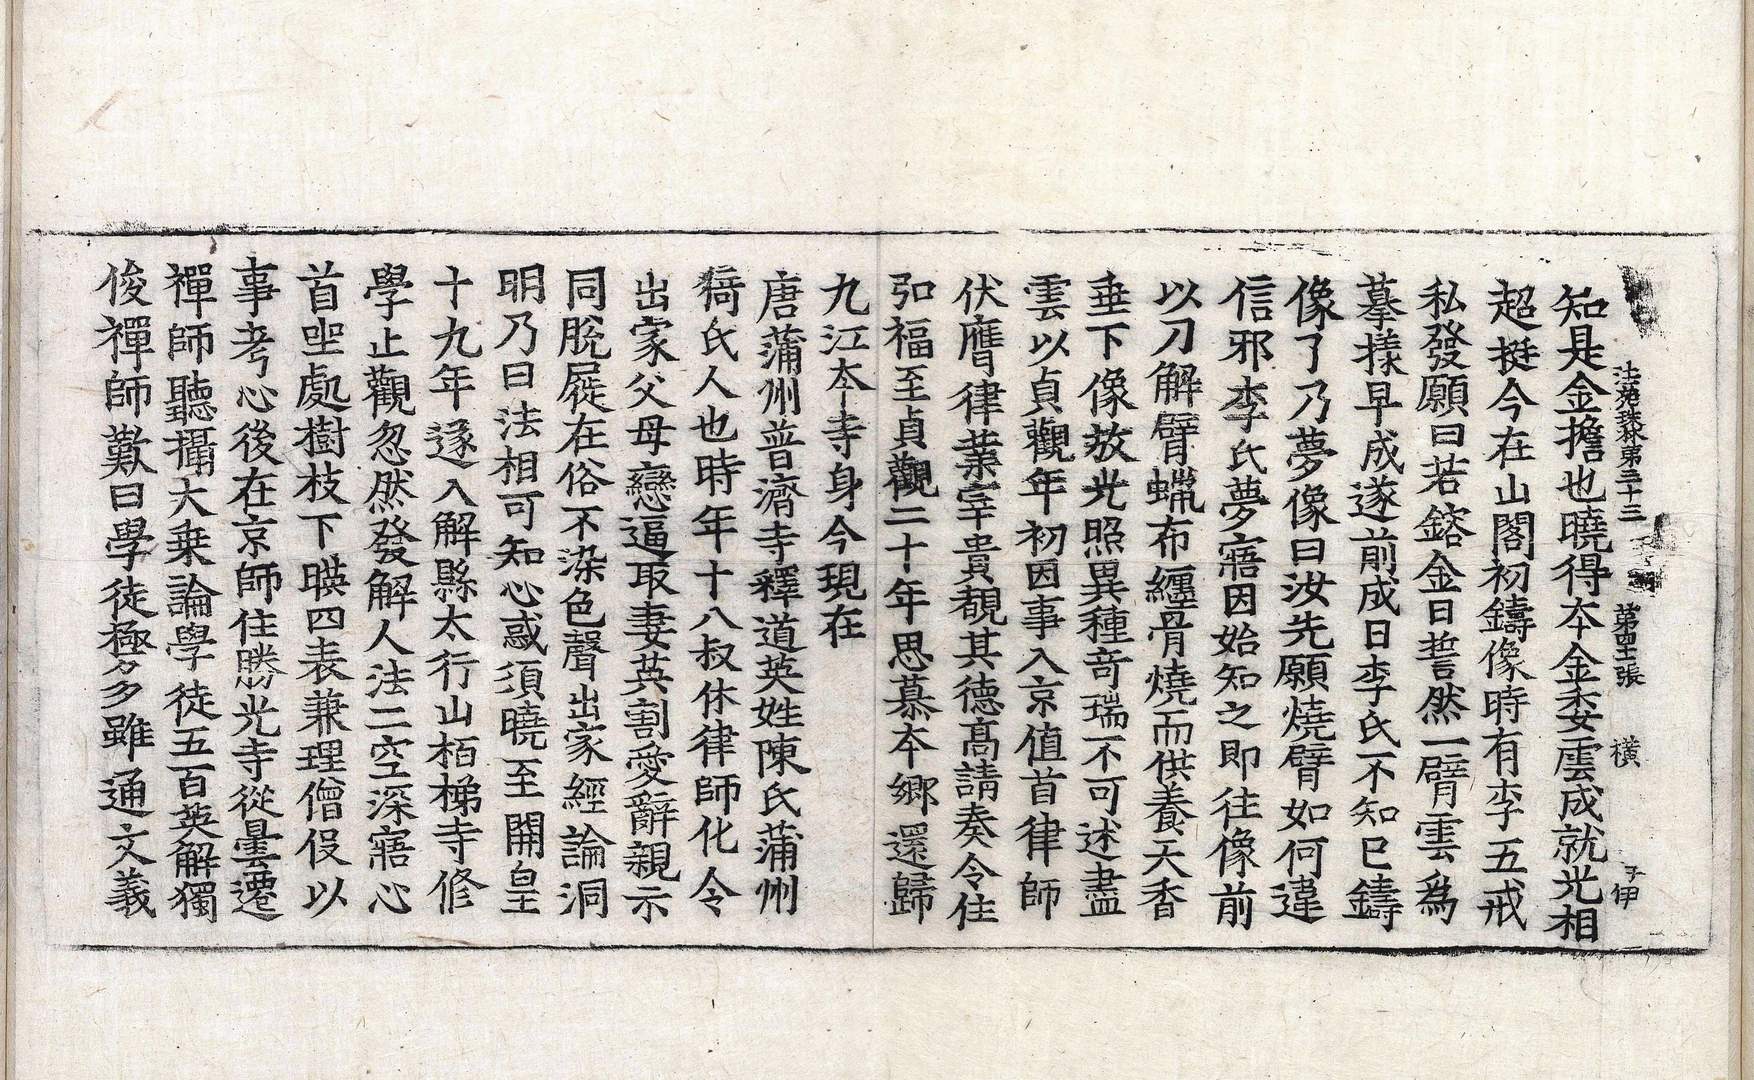 法苑珠林第三十三 第四十張 橫 子伊
知是金擔也曉得本金委雲成就光相
超挺今在山閣初鑄像時有李五戒
私發願曰若鎔金日誓然一臂雲爲
摹㨾早成遂前成日李氏不知已鑄
像了乃夢像曰汝先願燒臂如何違
信邪李氏夢寤因始知之即往像前
以刀解臂蠟布纏骨燒而供養天香
垂下像放光照異種奇瑞不可述盡
雲以貞觀年初因事入京值首律師
伏膺律業宰貴覩其德高請奏令住
弘福至貞觀二十年思慕本鄉還歸
九江本寺身今現在
唐蒲州普濟寺釋道英姓陳氏蒲州
猗氏人也時年十八叔休律師化令
出家父母戀逼取妻英割愛辭親示
同脫屣在俗不染色聲出家經論洞
明乃曰法相可知心惑須曉至開皇
十九年遂入解縣太行山栢梯寺修
學止觀忽然發解人法二空深寤心
首坐處樹枝下暎四表兼理僧伇以
事考心後在京師住勝光寺從曇遷
禪師聽攝大乗論學徒五百英解獨
俊禪師歎曰學徒極多多雖通文義